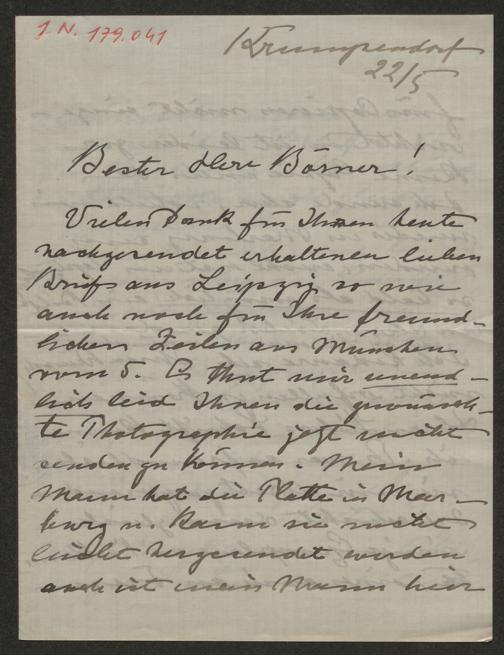 J. N. 179.041
Krumpendorf
22/5
Bester Herr Börner!
Vielen Dank für Ihren heute
nachgesendet erhaltenen lieben
Brief aus Leipzig so wie
auch noch für Ihre freund-
lichen Zeilen aus München
vom 5. Es thut mir unend-
lich leid Ihnen die gewünsch-
te Photographie jetzt nicht
senden zu können. Mein
Mann hat die Platte in Mar-
burg u. kann sie nicht
leicht hergesendet werden
auch ist mein Mann hier